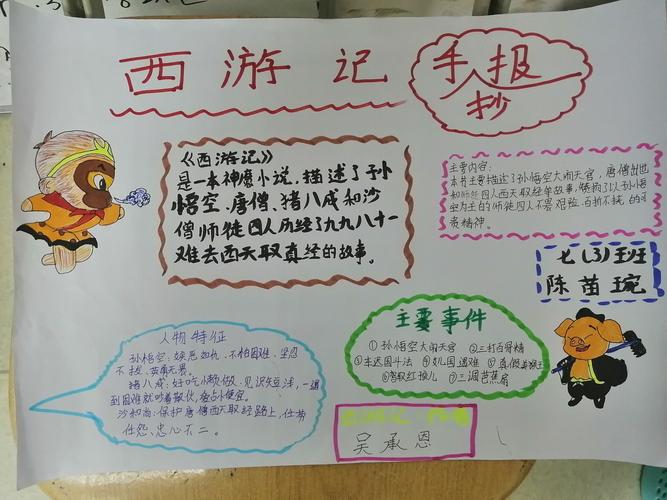 西游记
手抄报
《西游记》
是一本神魔小说,描述了孙
悟空、唐僧、猪八戒和沙
僧师徒四人历经了九九八十一
难去西天取真经的故事。
主要内容:
本书主要描述了孙悟空大闹天宫,唐僧出世
和师徒四人西天取经的故事,
空为主的师徒四人不畏艰险,百折不挠,的可
贵精神。
七(3)班
陈苗琬
主要事件
①孙悟空大闹天宫 ②三打白骨精
③车迟国斗法 ④女儿国遇难 ⑤真假美猴王
⑥智取红孩儿 ⑦三调芭蕉扇
人物特征
孙悟空:嫉恶如仇,不怕困难,坚忍
不拔,英勇无畏。
猪八戒:好吃懒做,见识短浅,一遇
到困难就吵着散伙,爱占小便宜。
沙和尚:保护唐僧西天取经路上,任劳
任怨、忠心不二。
西游记 作者
吴承恩